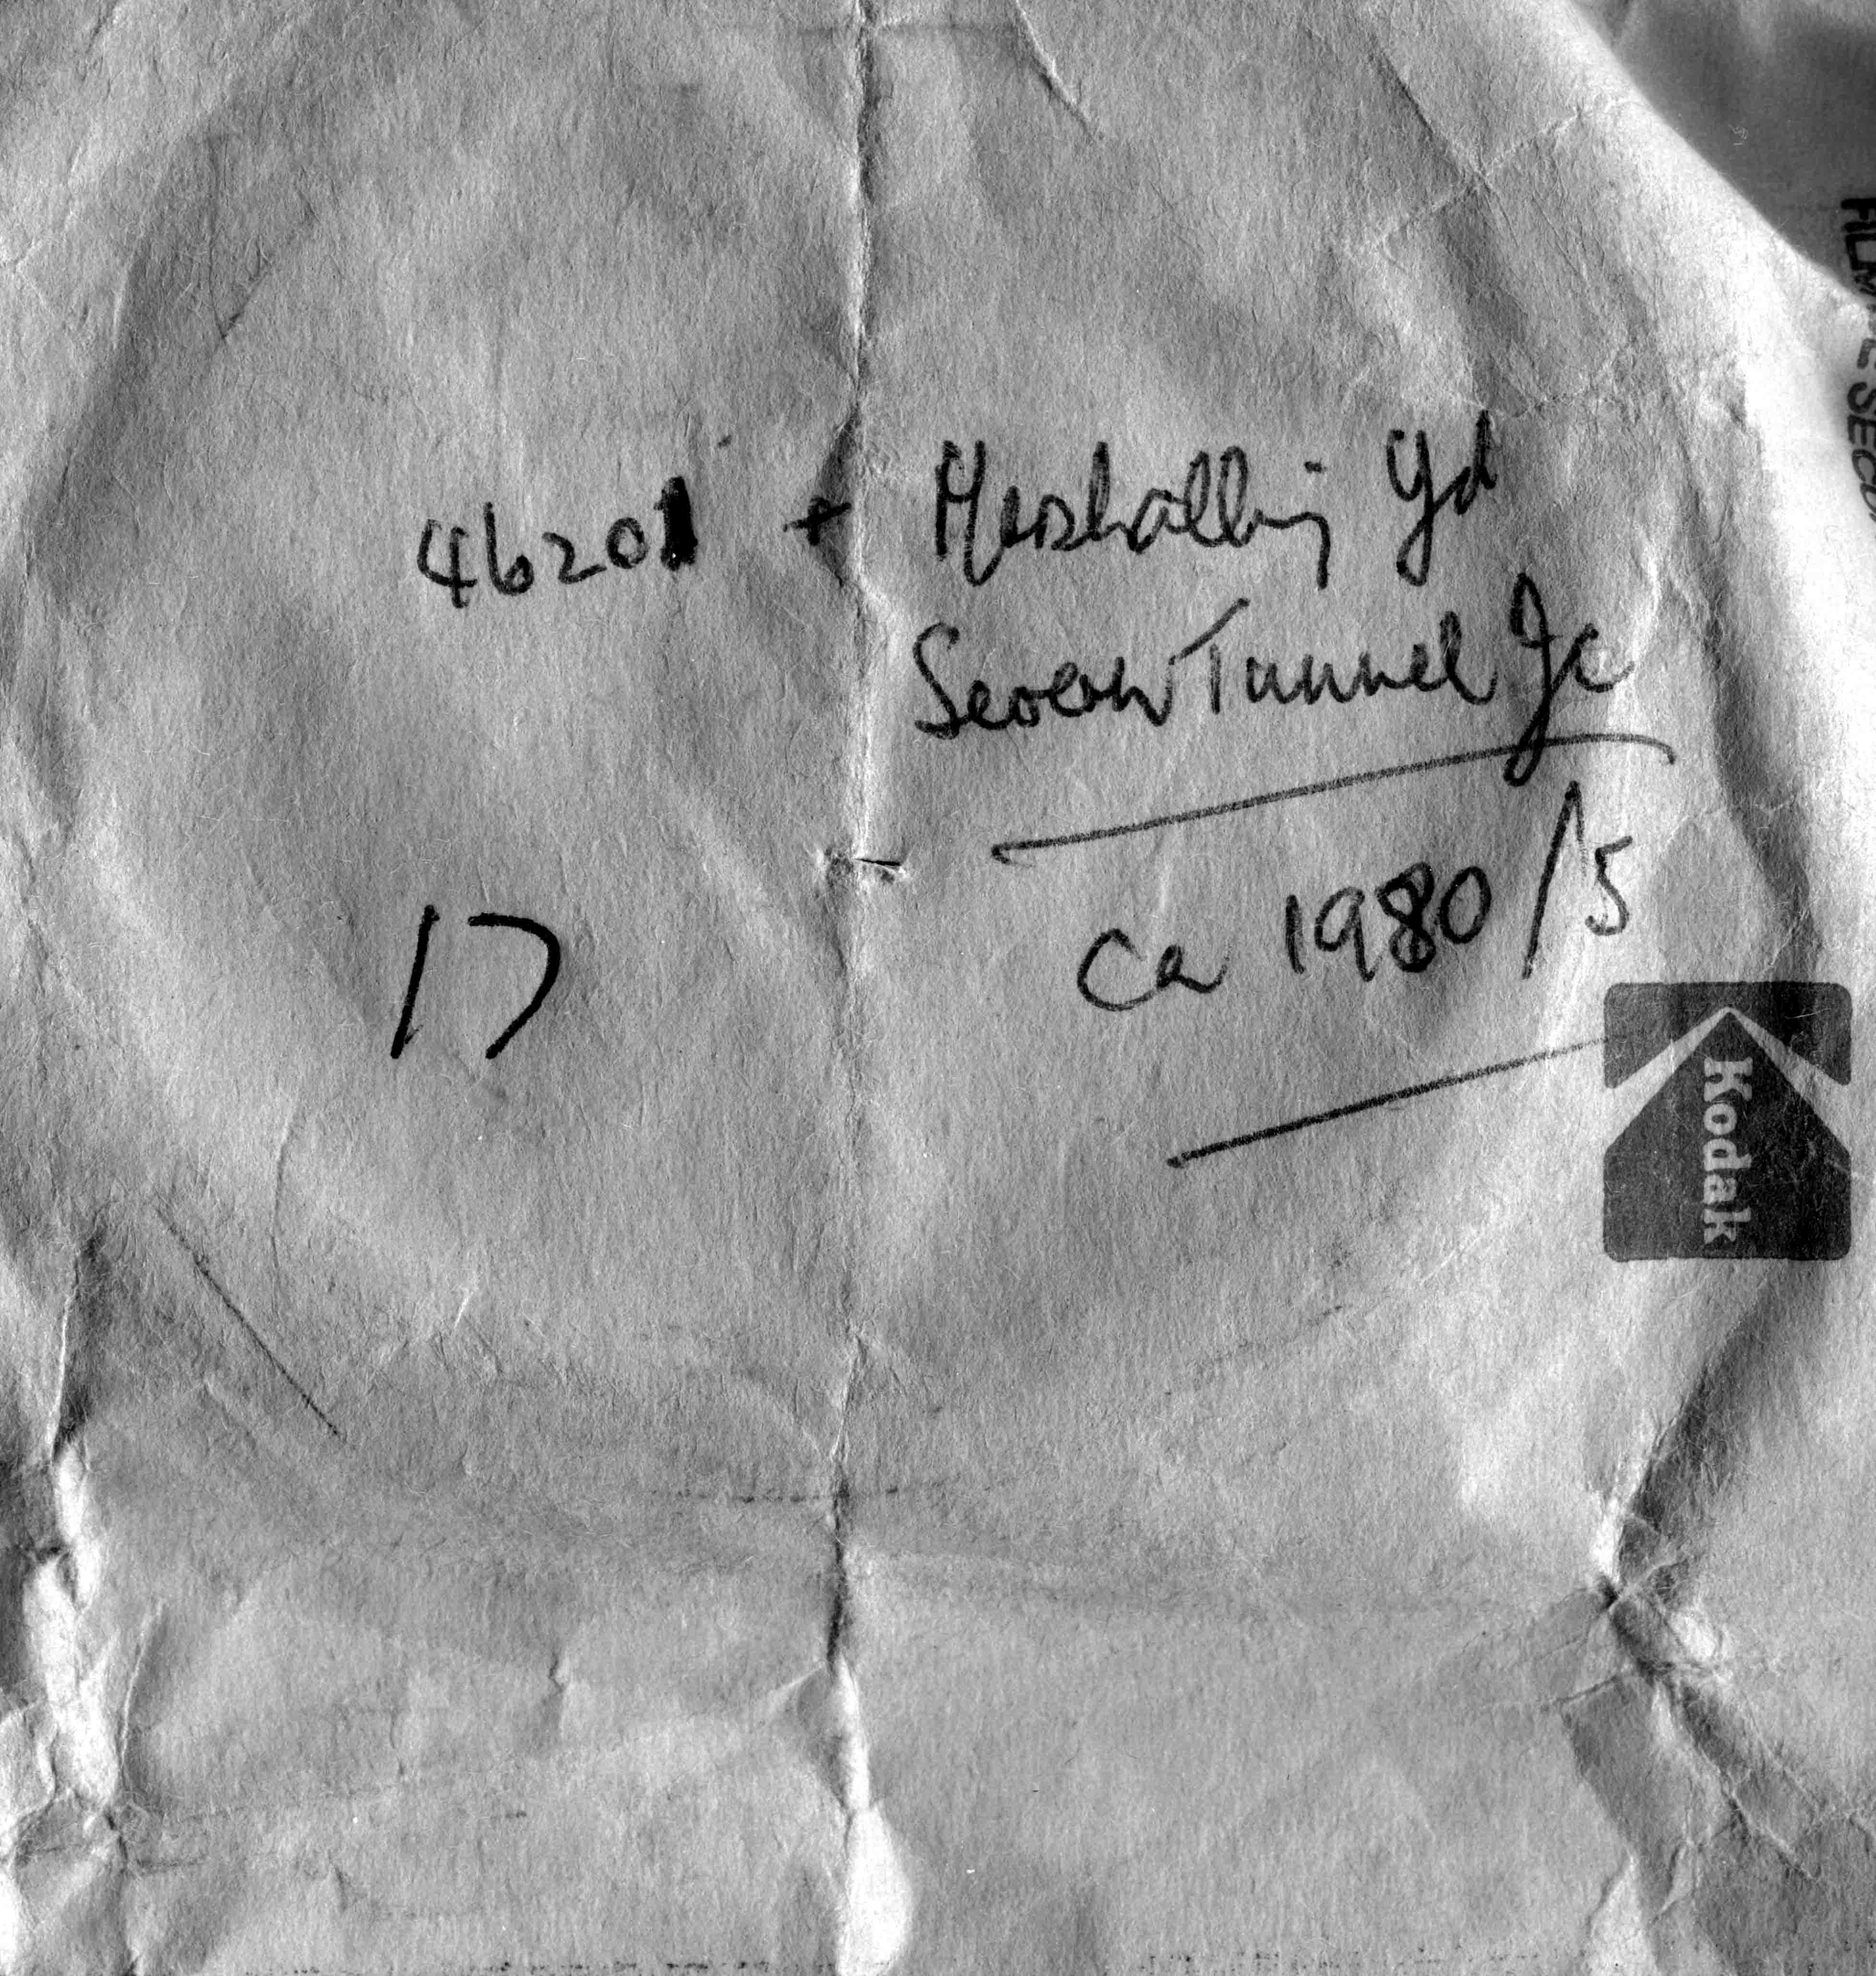 46201 + Marshalling Yd
Severn Tunnel Jc
17
Ca 1980/5
Kodak